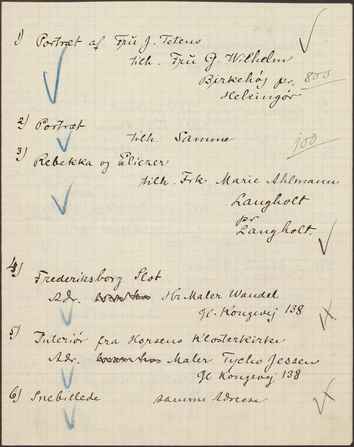 1) Portræt af Fru J. Tetens
tilh. Fru G. Wilhelm
Birkehøj pr. 800
Helsingør
2) Portræt
tilh. Samme 100
3) Rebekka og Eliezer
tilh. Frk. Marie Ahlmann
Langholt
pr
Langholt.
4) Frederiksborg Slot
Adr. Hr. Maler Wandel
Gl. Kongevej 138
5) Interiør fra Horsens Klosterkirke
Adr. Maler Tycho Jessen
Gl Kongevej 138
6) Snebillede samme Adresse